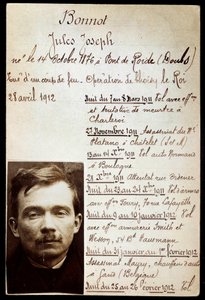 Bonnot
Jules Joseph
né le 14 Octobre 1876 à Pont de Roide (Doubs)
Tué d'un coup de feu - Opération de Choisy le Roi
28 avril 1912
Nuit du 7 au 8 Mars 1911 Vol avec eff
et tentative de meurtre à
Charleroi
27 Novembre 1911 Assassinat du Nᵉ
Platano à Châtelet (S et M)
13 au 14 Xbre 1911 Vol auto Normand
à Boulogne
21 Xbre 1911 Attentat rue Ordener
Nuit du 23 au 24 Xbre 1911 Vol d'armes
avec eff Foury, 70 rue Lafayette
Nuit du 9 au 10 janvier 1912 Vol
avec eff armurerie Smith et
Wesson, 54 Bd Haussmann
Nuit du 31 janvier au 1er février 1912
Assassinat chauffeur d'auto
à Gand (Belgique)
Nuit du 25 au 26 février 1912 Vol